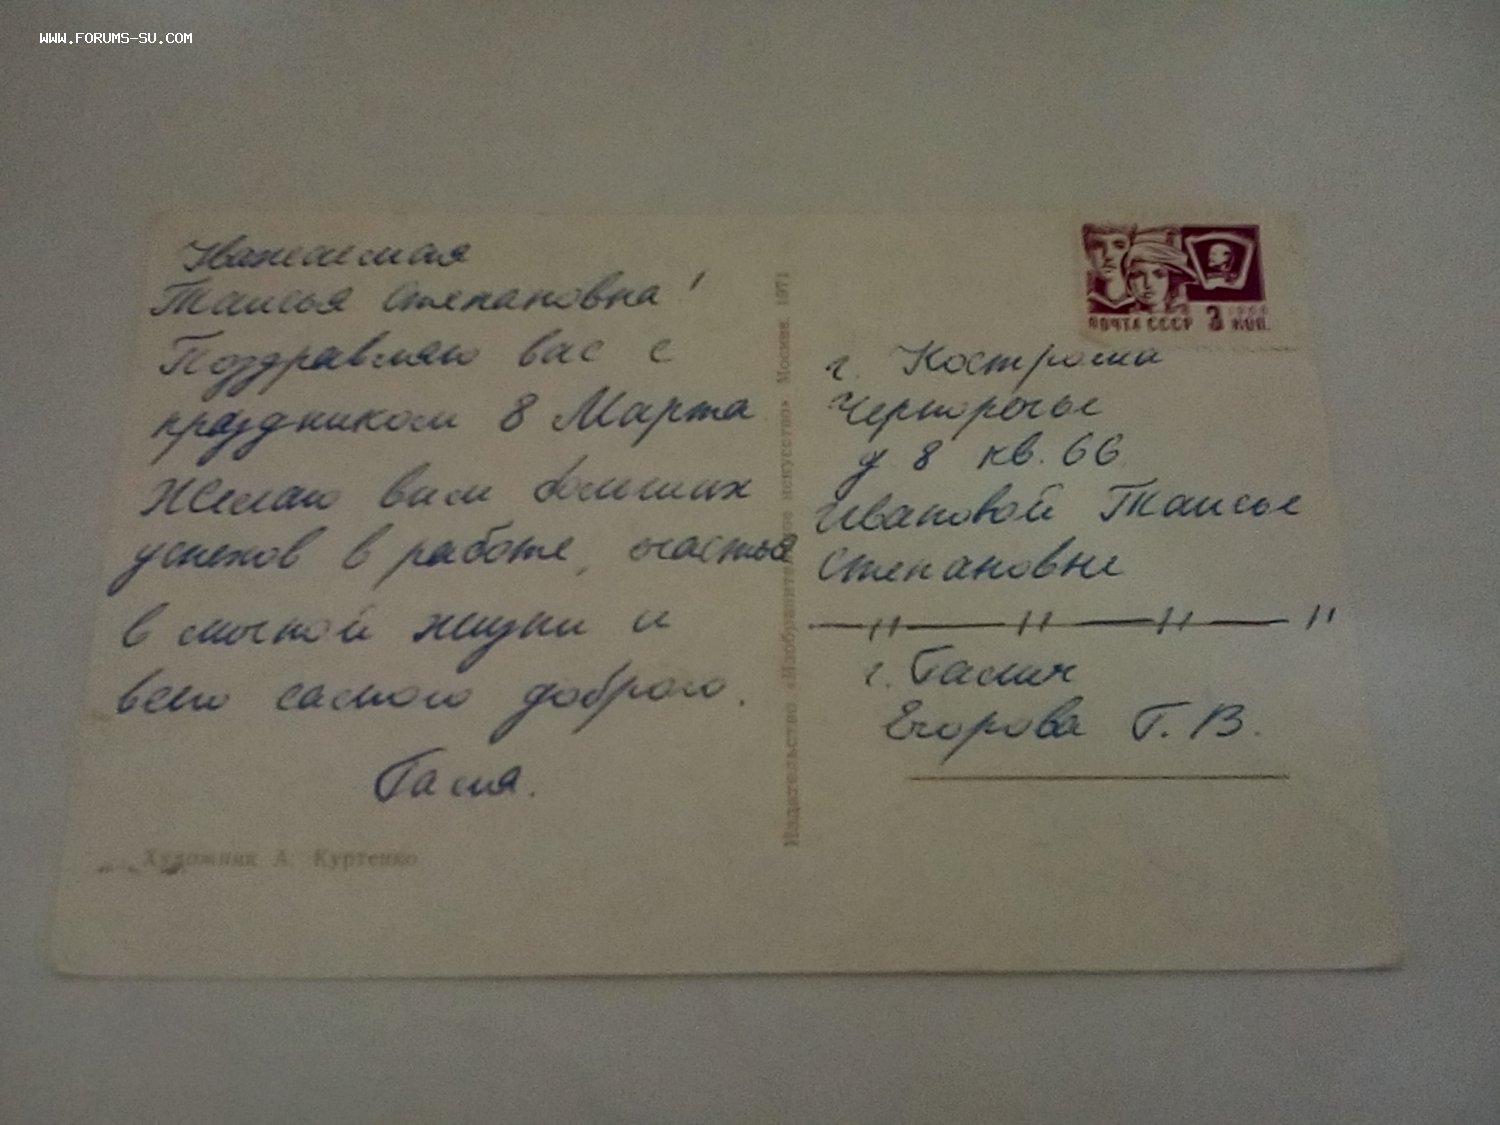 WWW.FORUMS-SU.COM
Уважаемая
Таисья Степановна!
Поздравляю вас с
праздником 8 Марта
Желаю вам больших
успехов в работе, счастья
в личной жизни и
всего самого доброго.
Галя.
Художник А. Куртенко
Издательство «Изобразительное искусство» Москва. 1971
ПОЧТА СССР 3 КОП.
г. Кострома
Черноречье
д 8 кв. 66
Ивановой Таисье
Степановне
г. Галич
Егорова Г. В.